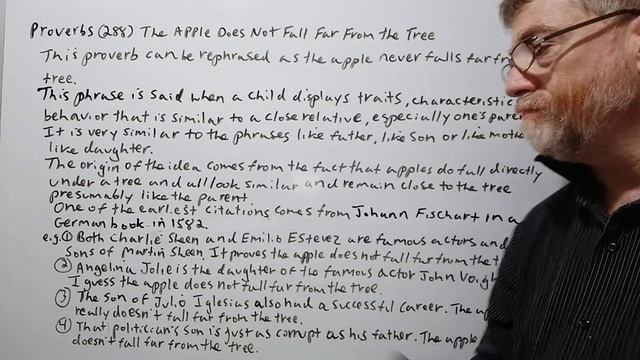 Proverbs (288) The Apple Does Not Fall Far From the Tree
This proverb can be rephrased as the apple never falls far
tree.
This phrase is said when a child displays traits, characteristic
behavior that is similar to a close relative, especially one's
It is very similar to the phrases like father, like son or like
like daughter.
The origin of the idea comes from the fact that apples do fall directly
under a tree and all look similar and remain close to the tree
presumably like the parent
One of the earliest citations comes from Johann Fischart in a
German book in 1582.
e.g. ① Both Charlie Sheen and Emilio Estevez are famous actors and
sons of Martin Sheen. It proves the apple does not fall far from the
② Angelina Jolie is the daughter of the famous actor John
I guess the apple does not fall far from the tree.
③ The son of Julio Iglesias also had a successful career. The
really doesn't fall far from the tree.
④ That politician's son is just as corrupt as his father. The apple
doesn't fall far from the tree.